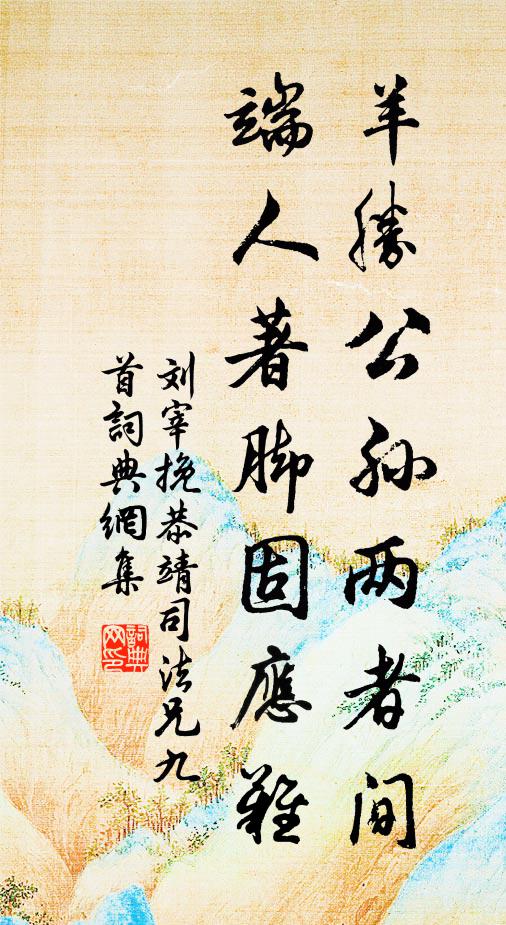 羊勝公孙两者间
端人著脚固應難
刘宰挽恭靖司法兄九
首詞典網集
詞典
网印